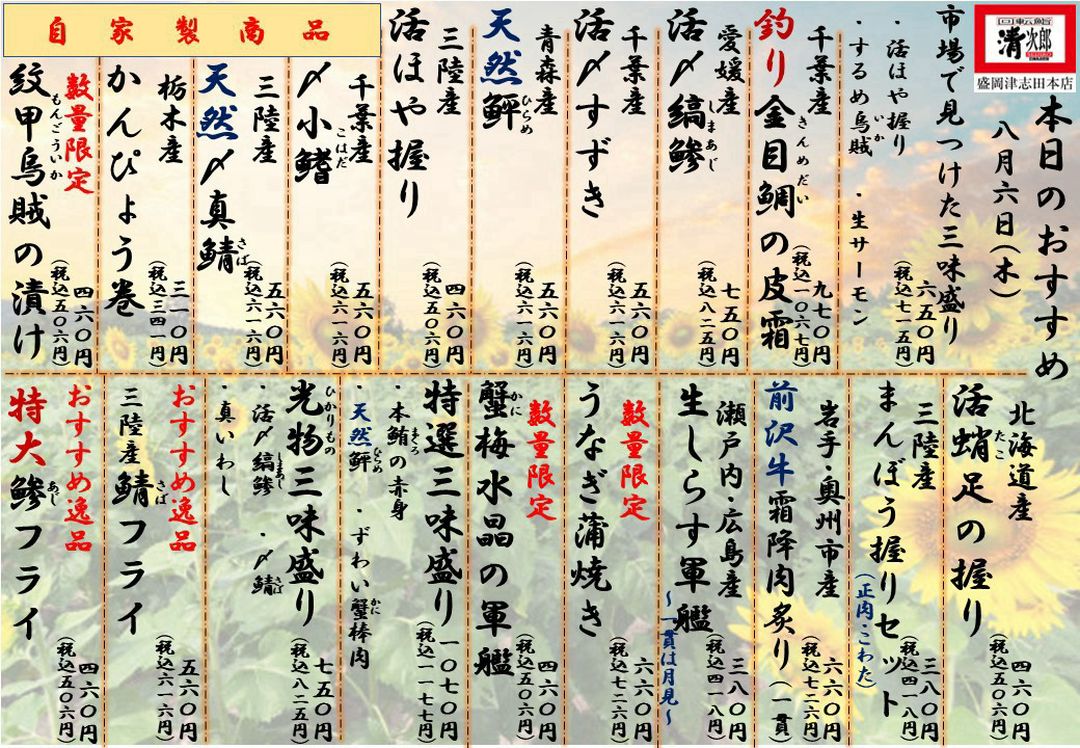 回転鮨
清次郎
盛岡津志田本店
本日のおすすめ
八月六日(木)
市場で見つけた三味盛り
・活ほや握り
・するめ烏賊
いか
・生サーモン
六五〇円
(税込七一五円)
千葉産
釣り金目鯛の皮霜
きんめだい
九七〇円
(税込一〇六七円)
愛媛産
活〆縞鯵
しまあじ
七五〇円
(税込八二五円)
千葉産
活〆すずき
五六〇円
(税込六一六円)
青森産
天然鮃
ひらめ
五六〇円
(税込六一六円)
三陸産
活ほや握り
四六〇円
(税込五〇六円)
自家製商品
千葉産
〆小鰭
こはだ
五六〇円
(税込六一六円)
三陸産
天然〆真鯖
さば
五六〇円
(税込六一六円)
栃木産
かんぴょう巻
三一〇円
(税込三四一円)
数量限定
紋甲烏賊の漬け
もんごういか
四六〇円
(税込五〇六円)
北海道産
活蛸足の握り
たこ
四六〇円
(税込五〇六円)
三陸産
まんぼう握りセット
(正肉・こわた)
三八〇円
(税込四一八円)
岩手・奥州市産
前沢牛霜降肉炙り(一貫)
六六〇円
(税込七二六円)
瀬戸内・広島産
生しらす軍艦
〜一貫は月見〜
三八〇円
(税込四一八円)
数量限定
うなぎ蒲焼き
六六〇円
(税込七二六円)
数量限定
蟹梅水晶の軍艦
かに
四六〇円
(税込五〇六円)
特選三味盛り
・本鮪の赤身
まぐろ
・天然鮃
ひらめ
・ずわい蟹棒肉
かに
一〇七〇円
(税込一一七七円)
光物三味盛り
ひかりもの
・活〆縞鯵
しまあじ
・〆鯖
さば
・真いわし
七五〇円
(税込八二五円)
おすすめ逸品
三陸産鯖フライ
さば
五六〇円
(税込六一六円)
おすすめ逸品
特大鯵フライ
あじ
四六〇円
(税込五〇六円)